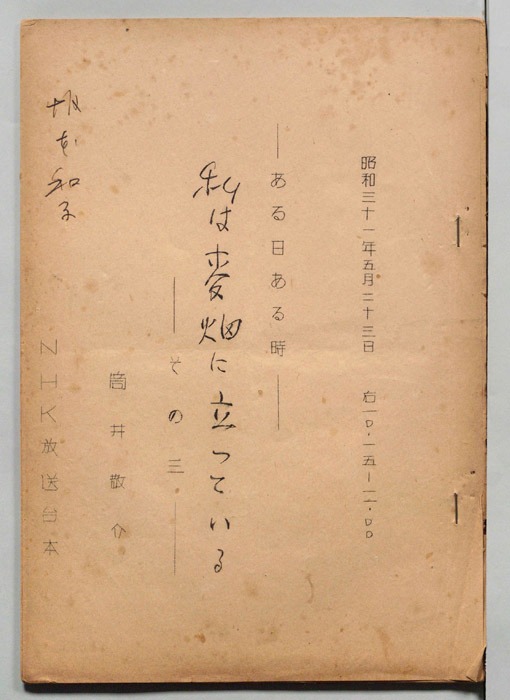 昭和三十一年五月二十三日 后一〇・一五―一一・〇〇
―ある日ある時―
私は麦畑に立っている
―その三―
筒井敬介
NHK放送台本
坂本和子